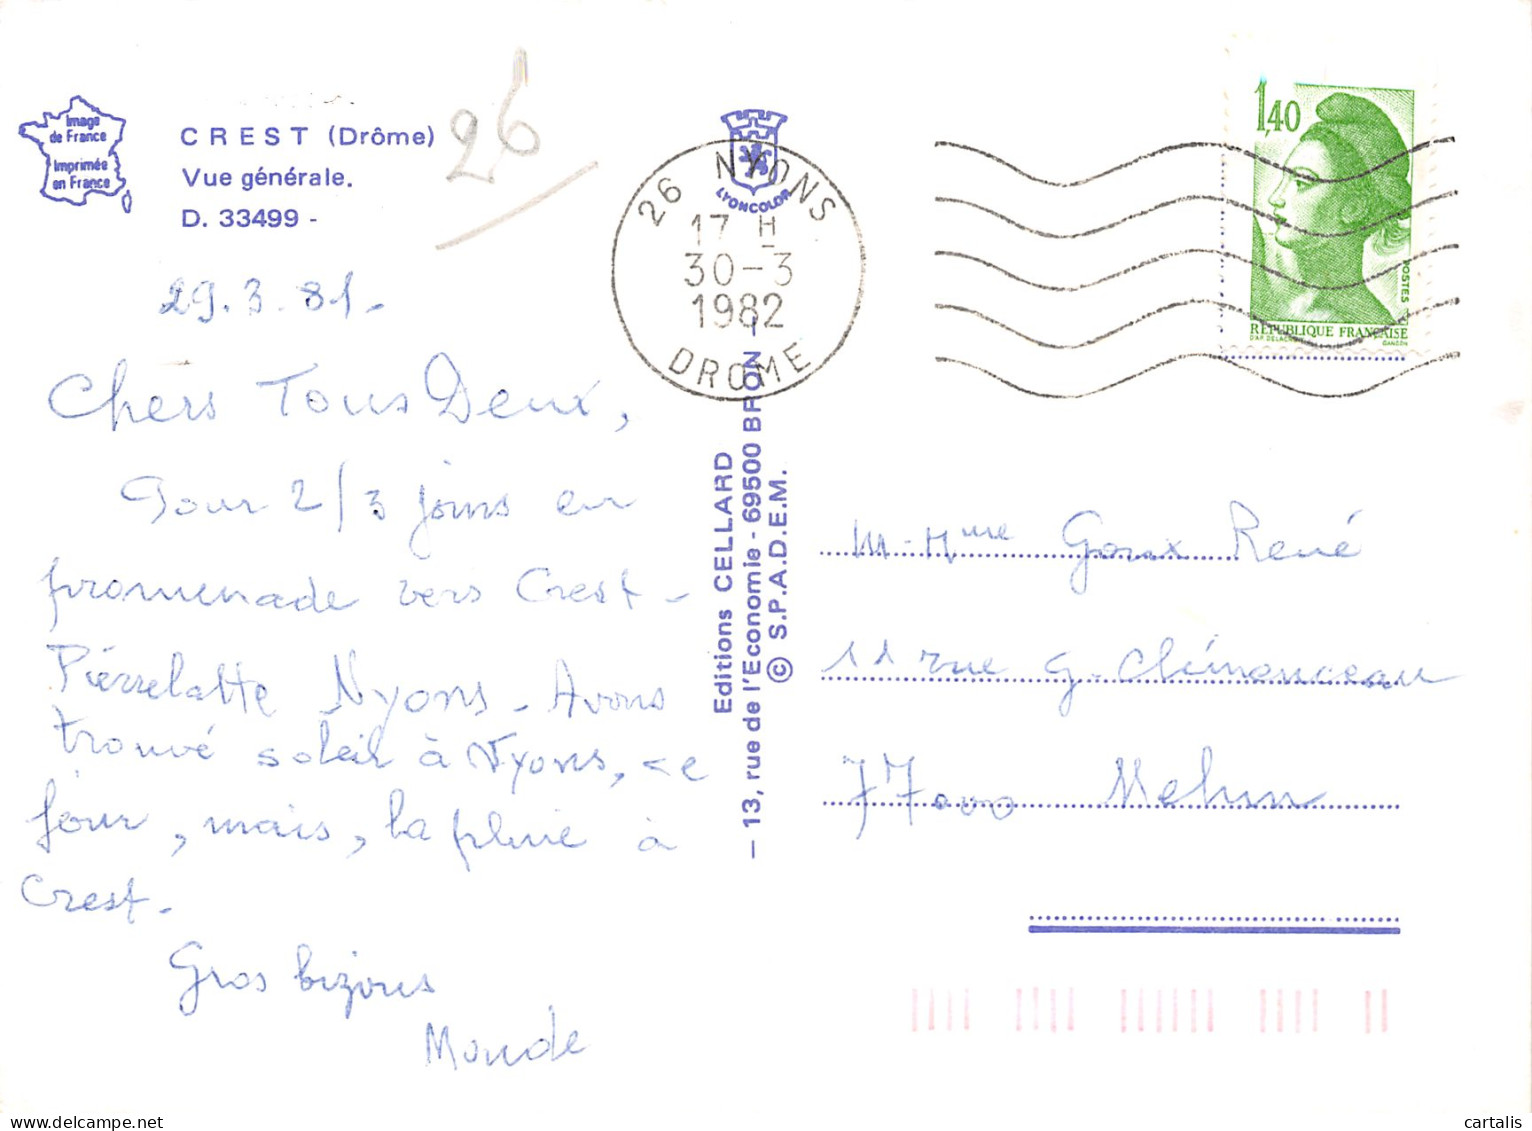 Image
de France
Imprimée
en France
CREST (Drôme)
Vue générale.
D. 33499 -
26
29.3.81-
Chers Tous Deux,
Pour 2/3 jours en
promenade vers Crest -
Pierrelatte Nyons - Avons
trouvé soleil à Nyons, ce
jour, mais, la pluie à
Crest -
Gros bizous
LYONCOLOR
26 NYONS
17 H
30-3
1982
DROME
Editions CELLARD
- 13, rue de l'Economie - 69500 BRON -
© S.P.A.D.E.M.
1,40
POSTES
RÉPUBLIQUE FRANÇAISE
D'AP. DELACROIX GANDON
M-Mme Goux René
11 rue G. Clémenceau
77000 Melun
cartalis